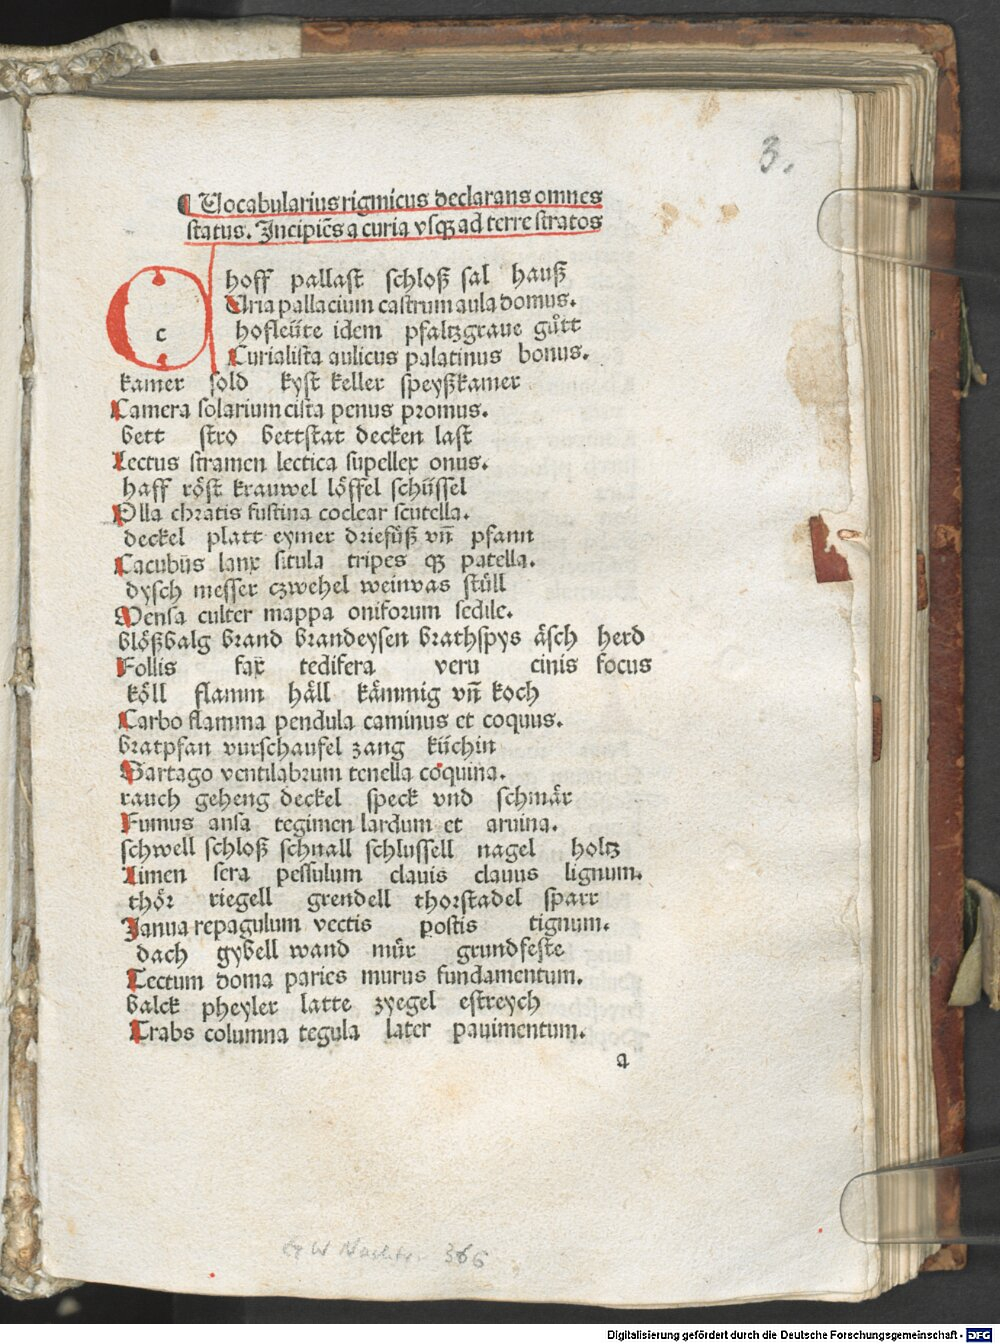 3.
¶ Vocabularius rigmicus declarans omnes
status. Incipiẽs a curia vsqꝫ ad terre stratos
hoff pallast schloß sal hauß
CUria pallacium castrum aula domus.
c
hofleüte idem pfaltzgraue gůtt
Curialista aulicus palatinus bonus.
kamer sold kyst keller speyßkamer
Camera solarium cista penus promus.
bett stro bettstat decken last
Lectus stramen lectica supellex onus.
haff röst krauwel löffel schüssel
Olla chratis fustina coclear scutella.
deckel platt eymer driefüß vñ pfann
Cacubüs lanx situla tripes qꝫ patella.
dysch messer czwehel weinuas stůll
Mensa culter mappa oniforum sedile.
blößbalg brand brandeysen brathspys äsch herd
Follis fax tedifera veru cinis focus
köll flamm häll kämmig vñ koch
Carbo flamma pendula caminus et coquus.
bratpfan vurschaufel zang küchin
Sartago ventilabrum tenella coquina.
rauch geheng deckel speck vnd schmär
Fumus ansa tegimen lardum et aruina.
schwell schloß schnall schlussell nagel holtz
Limen sera pessulum clauis clauus lignum.
thör riegell grendell thorstadel sparr
Janua repagulum vectis postis tignum.
dach gybell wand můr grundfeste
Tectum doma paries murus fundamentum.
balck pheyler latte zyegel estreych
Trabs columna tegula later pauimentum.
a
GW Nachtr. 366
Digitalisierung gefördert durch die Deutsche Forschungsgemeinschaft - DFG